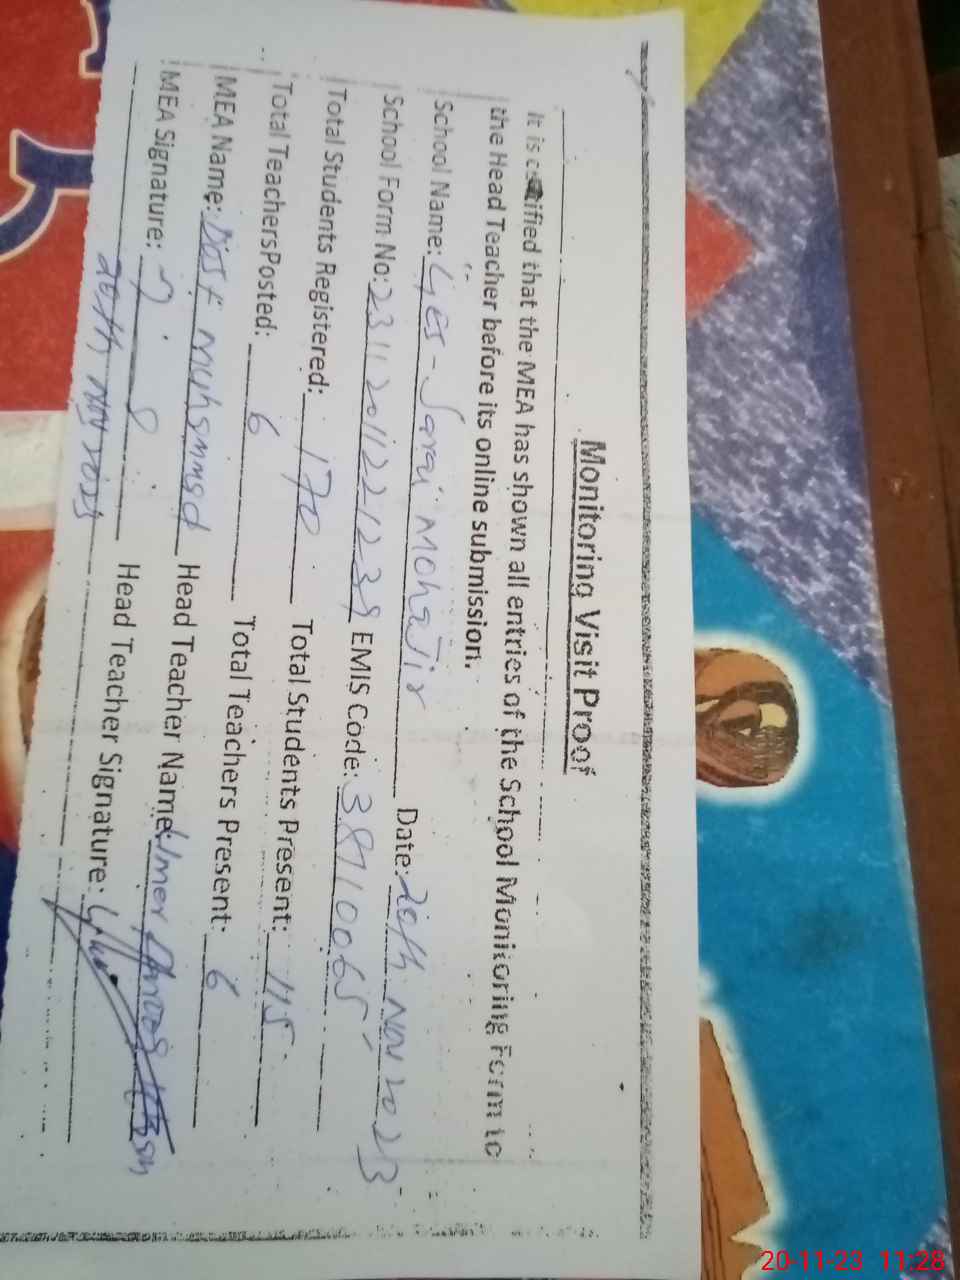 Monitoring Visit Proof
It is certified that the MEA has shown all entries of the School Monitoring Form to
the Head Teacher before its online submission.
School Name: Ges - Sarai Mohajir Date: 20th Nov 2023
School Form No: 2311201122 EMIS Code: 38710065
Total Students Registered: 170 Total Students Present: 115
Total TeachersPosted: 6 Total Teachers Present: 6
MEA Name: Dost Muhammad Head Teacher Name: Umer
MEA Signature: Head Teacher Signature:
20th Nov 2023
20-11-23 11:28